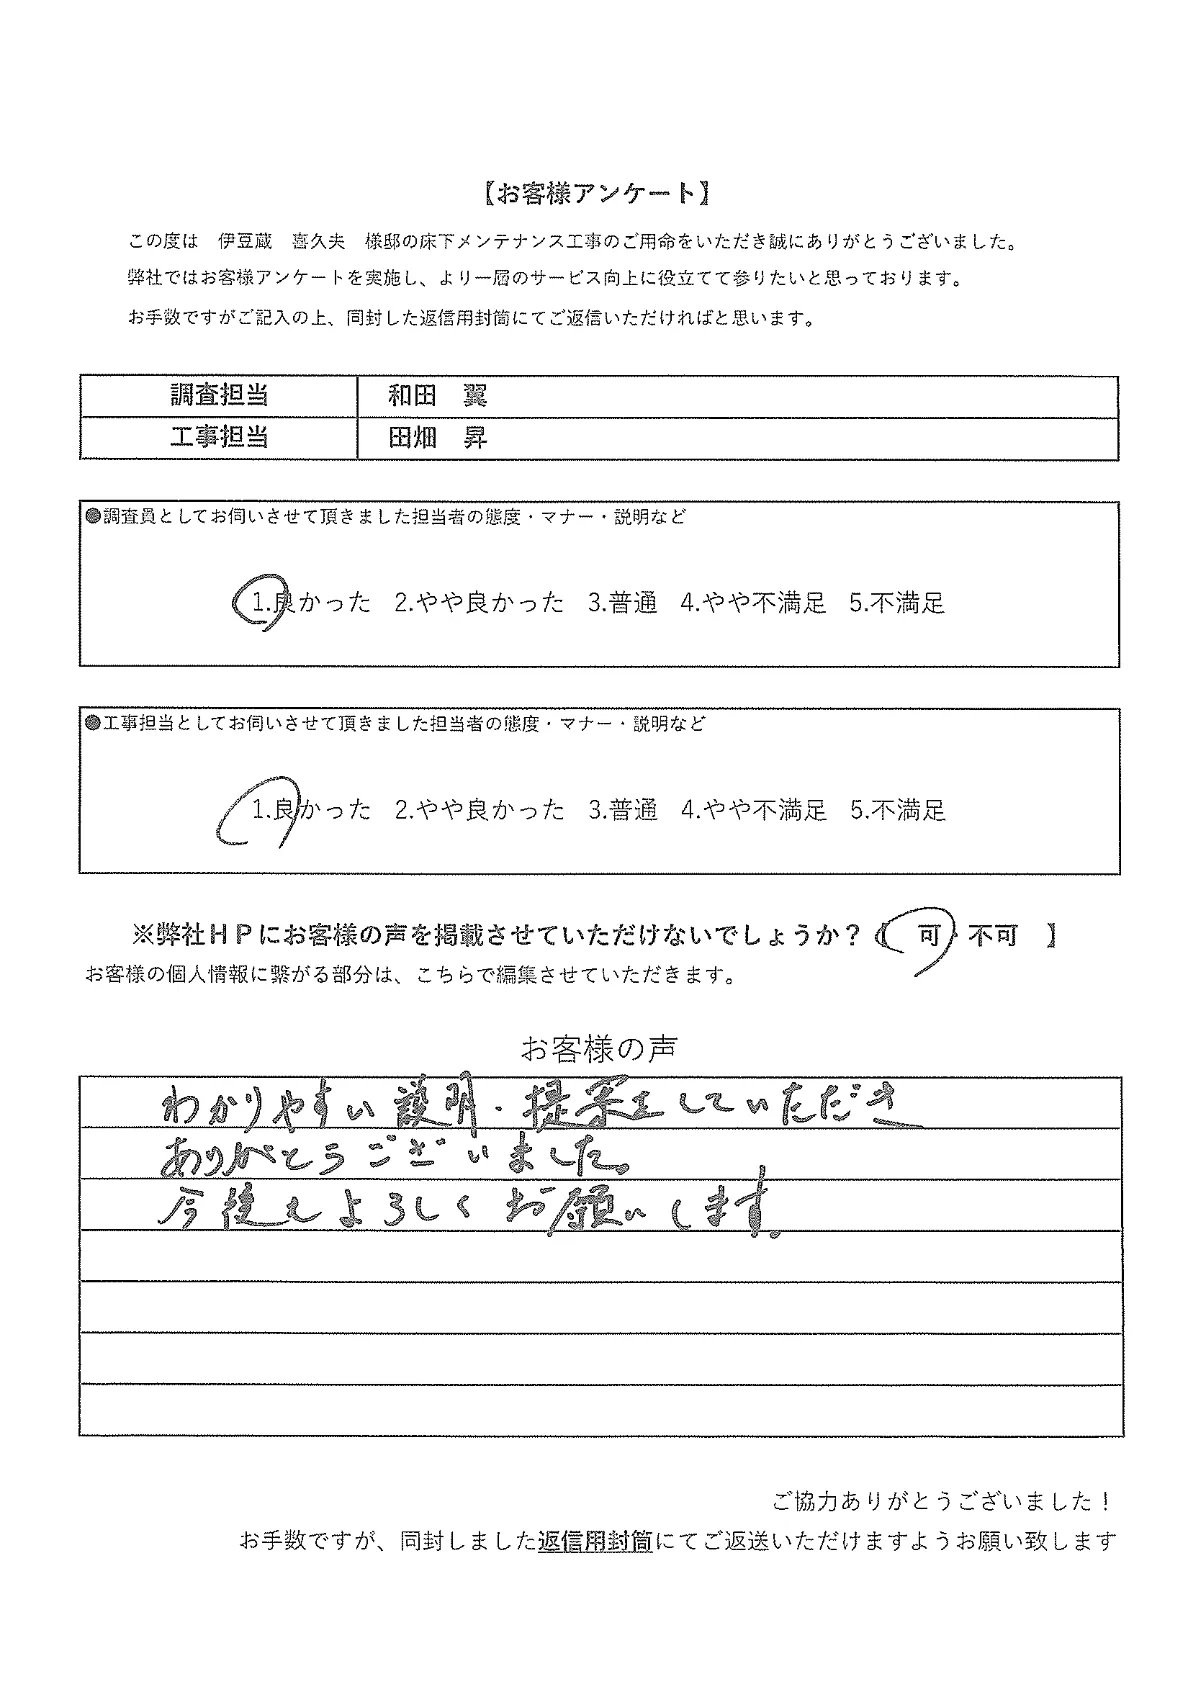 【お客様アンケート】
この度は　伊豆蔵　喜久夫　様邸の床下メンテナンス工事のご用命をいただき誠にありがとうございました。
弊社ではお客様アンケートを実施し、より一層のサービス向上に役立てて参りたいと思っております。
お手数ですがご記入の上、同封した返信用封筒にてご返信いただければと思います。
調査担当　和田　翼
工事担当　田畑　昇
●調査員としてお伺いさせて頂きました担当者の態度・マナー・説明など
1.良かった　2.やや良かった　3.普通　4.やや不満足　5.不満足
●工事担当としてお伺いさせて頂きました担当者の態度・マナー・説明など
1.良かった　2.やや良かった　3.普通　4.やや不満足　5.不満足
※弊社ＨＰにお客様の声を掲載させていただけないでしょうか？【　可・不可　】
お客様の個人情報に繋がる部分は、こちらで編集させていただきます。
お客様の声
わかりやすい説明・提案をしていただき
ありがとうございました。
今後もよろしくお願いします。
ご協力ありがとうございました！
お手数ですが、同封しました返信用封筒にてご返送いただけますようお願い致します